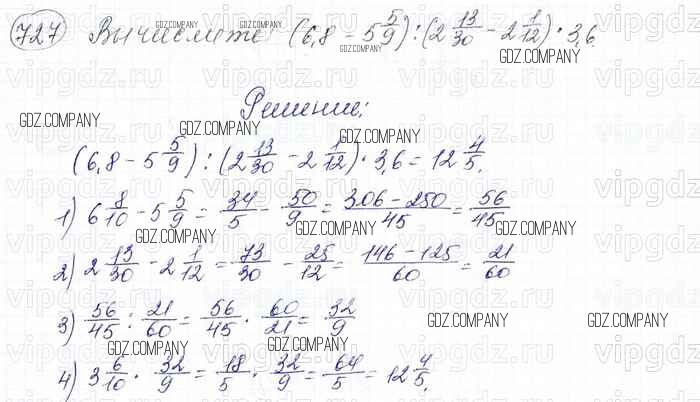 727 Вычислите (6,8 - 5 5/9) : (2 13/30 - 2 1/12) · 3,6.
Решение:
(6,8 - 5 5/9) : (2 13/30 - 2 1/12) · 3,6 = 12 4/5.
1) 6 8/10 - 5 5/9 = 34/5 - 50/9 = 306 - 250/45 = 56/45
2) 2 13/30 - 2 1/12 = 73/30 - 25/12 = 146 - 125/60 = 21/60
3) 56/45 : 21/60 = 56/45 · 60/21 = 32/9
4) 3 6/10 · 32/9 = 18/5 · 32/9 = 64/5 = 12 4/5.
GDZ.COMPANY
GDZ.COMPANY
GDZ.COMPANY
GDZ.COMPANY
GDZ.COMPANY
GDZ.COMPANY
GDZ.COMPANY
GDZ.COMPANY
GDZ.COMPANY
GDZ.COMPANY
GDZ.COMPANY
GDZ.COMPANY
vipgdz.ru